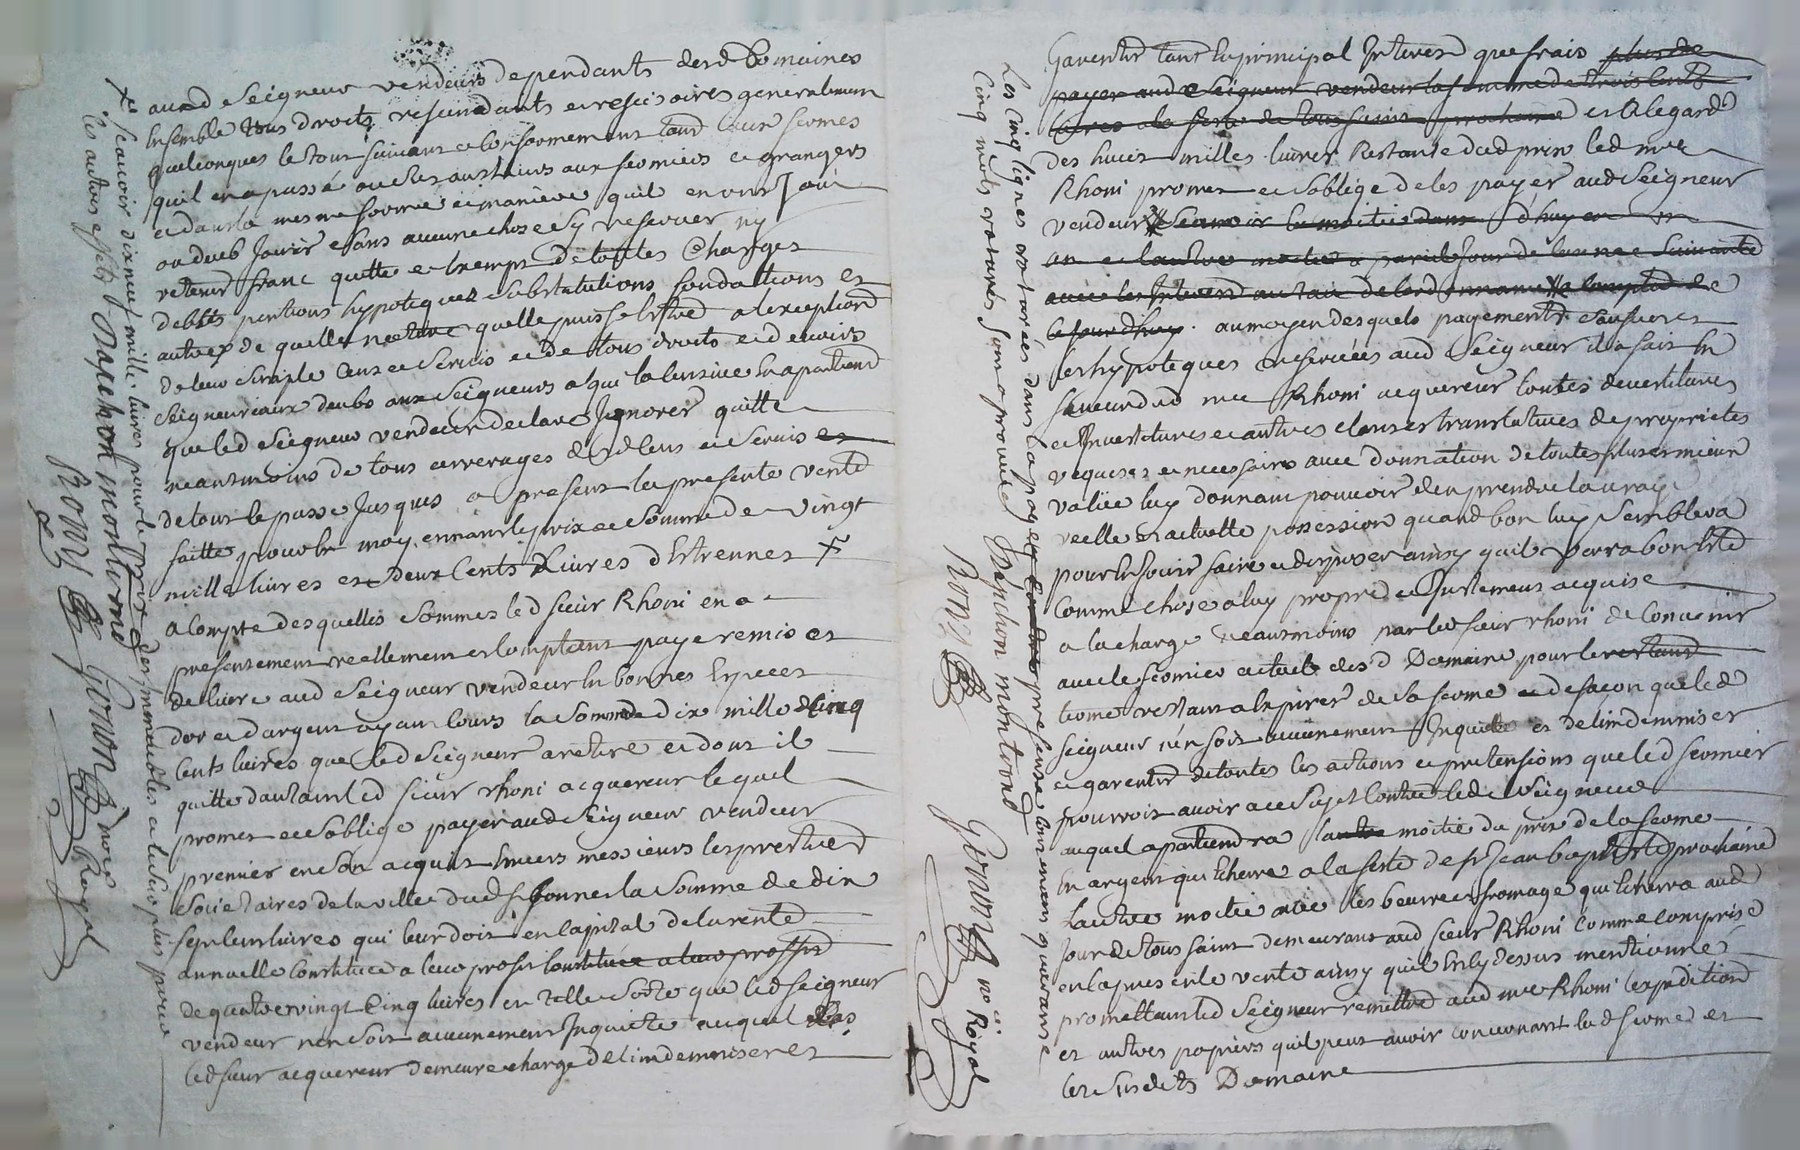 aud Seigneur vendeurs dependants desd Domaines
Ensemble tous droits rescindants et rescisoires generalement
quelconques le tout suivant et conformement aud leur fermes
quil en a passé aux fermiers et grangers
et dans la mesme forme et maniere quil en ont Joui
ou deub Jouir sans aucune chose sy reserver ny
retenir franc quitte et exempt de toutes Charges
debtes pentions hypoteques substitutions fondations et
autres de quelle nature quelle puisse Estre a lexception
de leur simple Cens et Servis et de tous droits et devoirs
Seigneuriaux deubs aux Seigneurs a qui la Censive En apartient
que led Seigneur vendeur declare Ignorer quitte
neantmoins de tous arrerages desd Cens et Servis et
de tout le passé Jusques a present la presente vente
faitte pour et moyennant le prix et Somme de vingt
mille livres et deux Cents Livres d'Estrennes +
a Compte desquelles Sommes led sieur Rhoni en a
presentement reellement et Comptant payé remis et
delivré aud Seigneur vendeur En bonnes Especes
dor et dargent ayant Cours la Somme de dix mille Cinq
Cents livres que led Seigneur a retiré et dont il
quitte dautant led sieur rhoni acquereur lequel
promet et soblige payer aud Seigneur vendeur
premier en Son acquit Envers messieurs les prestres
Societaires de la ville dud St bonnet la Somme de dix
sept Cent livres qui leur doit en Capital de la rente
annuelle Constituée a leur profit Constituée a leur proffit
de quatre vingt Cinq livres en telle Sorte que led Seigneur
vendeur nen Soit aucunement Inquieté auquel Cas
led sieur acquereur demeure chargé de lindemniser et
+ Scavoir dix neuf mille livres pour le prix des immeubles et le surplus pour
les autres effets Hanchon montrond Gonon Rony
not Royal
Garentir tant En principal Interest que frais plus de
payer aud Seigneur vendeur la Somme de trois Cents
livres a la feste de toussaint prochaine et A legard
des huit milles livres Restante dud prix led mre
Rhoni promet et soblige de les payer aud Seigneur
vendeur Scavoir la moitié dans d'huy en un
an et lautre moitié a pareil Jour de lannée Suivante
avec les Interest au taux de lordonnance a Compter de
ce Jourdhuy. au moyen desquels payements
les hypoteques reservées aud Seigneur il a fait En
faveur dud mre Rhoni acquereur toutes devestitures
et Investitures et autres Clauses translatives de proprietes
requises et necessaires avec donnation de toutes plus et mieux
value luy donnant pouvoir den prendre la vraye
reelle et actuelle possession quand bon luy Semblera
pour En Jouir faire et disposer ainsy quil verra bon Estre
Comme chose a luy propre et Justement acquise
a la charge neantmoins par led sieur rhoni de Convenir
avec le fermier actuel desd Domaine pour le restant
terme restant a Expirer de Sa ferme et de façon que led
Seigneur n'en soit aucunement Inquieté et de lindemniser
et garentir de toutes les actions et pretensions que led fermier
pourroit avoir a ce Sujet Contre led Seigneur
auquel apartiendra lautre moitié du prix de la ferme
En argent qui Echerra a la feste de St Jean baptiste prochaine
Lautre moitié avec les beurre et fromage qui Echerra aud
Jour de tous saint demeurant aud sieur Rhoni Comme comprise
en la presente vente ainsy quil En Cy dessus mentionné
promettant led Seigneur remettre aud mre Rhoni lexpedition
et autres papiers quil peut avoir concernant lad ferme et
les susdits Domaine
Les Cinq lignes et ratures dans la page presente Cinq mots
ratures Sont aprouvées Hanchon montrond
Rony Gonon no Royal